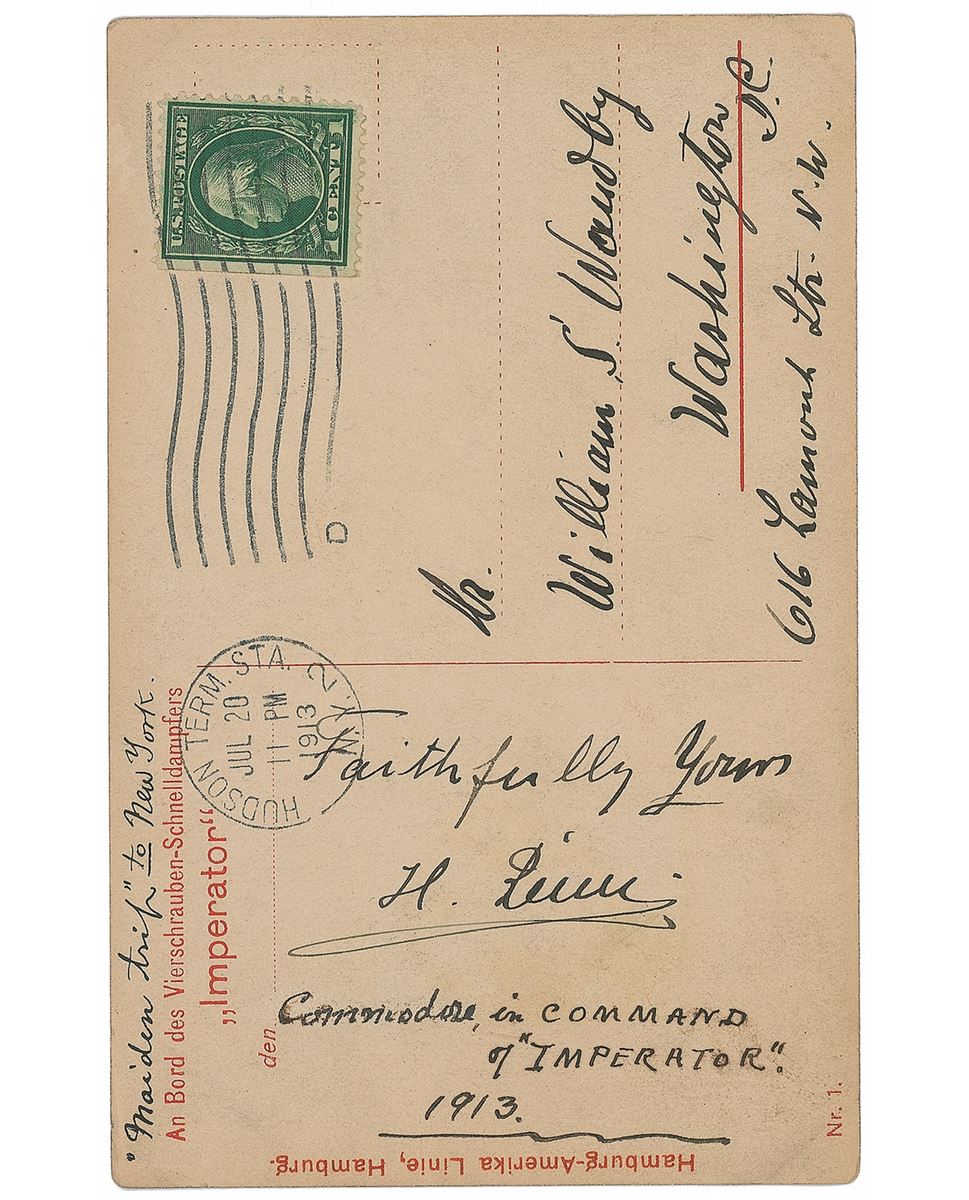 "Maiden trip" to New York.
An Bord des Vierschrauben-Schnelldampfers
„Imperator“
den
Faithfully Yours
H.
Commodore, in COMMAND
of "IMPERATOR".
1913.
Hamburg-Amerika Linie, Hamburg.
Nr. 1.
HUDSON TERM. STA. N.Y. 2
JUL 20
11 PM
1913
D
U.S. POSTAGE
1 CENT 1
William S. Wandby
Washington D.C.
616 Lamont Str. N.W.